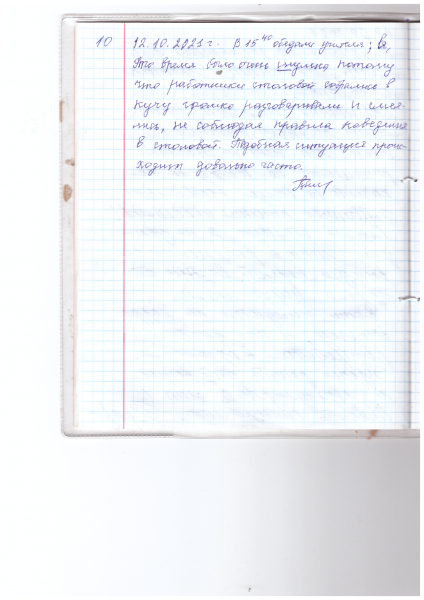 10 12.10.2021 г. В 15 40 обедали учителя; в,
Это время было очень шумно потому
что работники столовой собрались в
кучу громко разговаривали и смея-
лись, не соблюдая правила поведения
в столовой. Подобная ситуация проис-
ходит довольно часто.